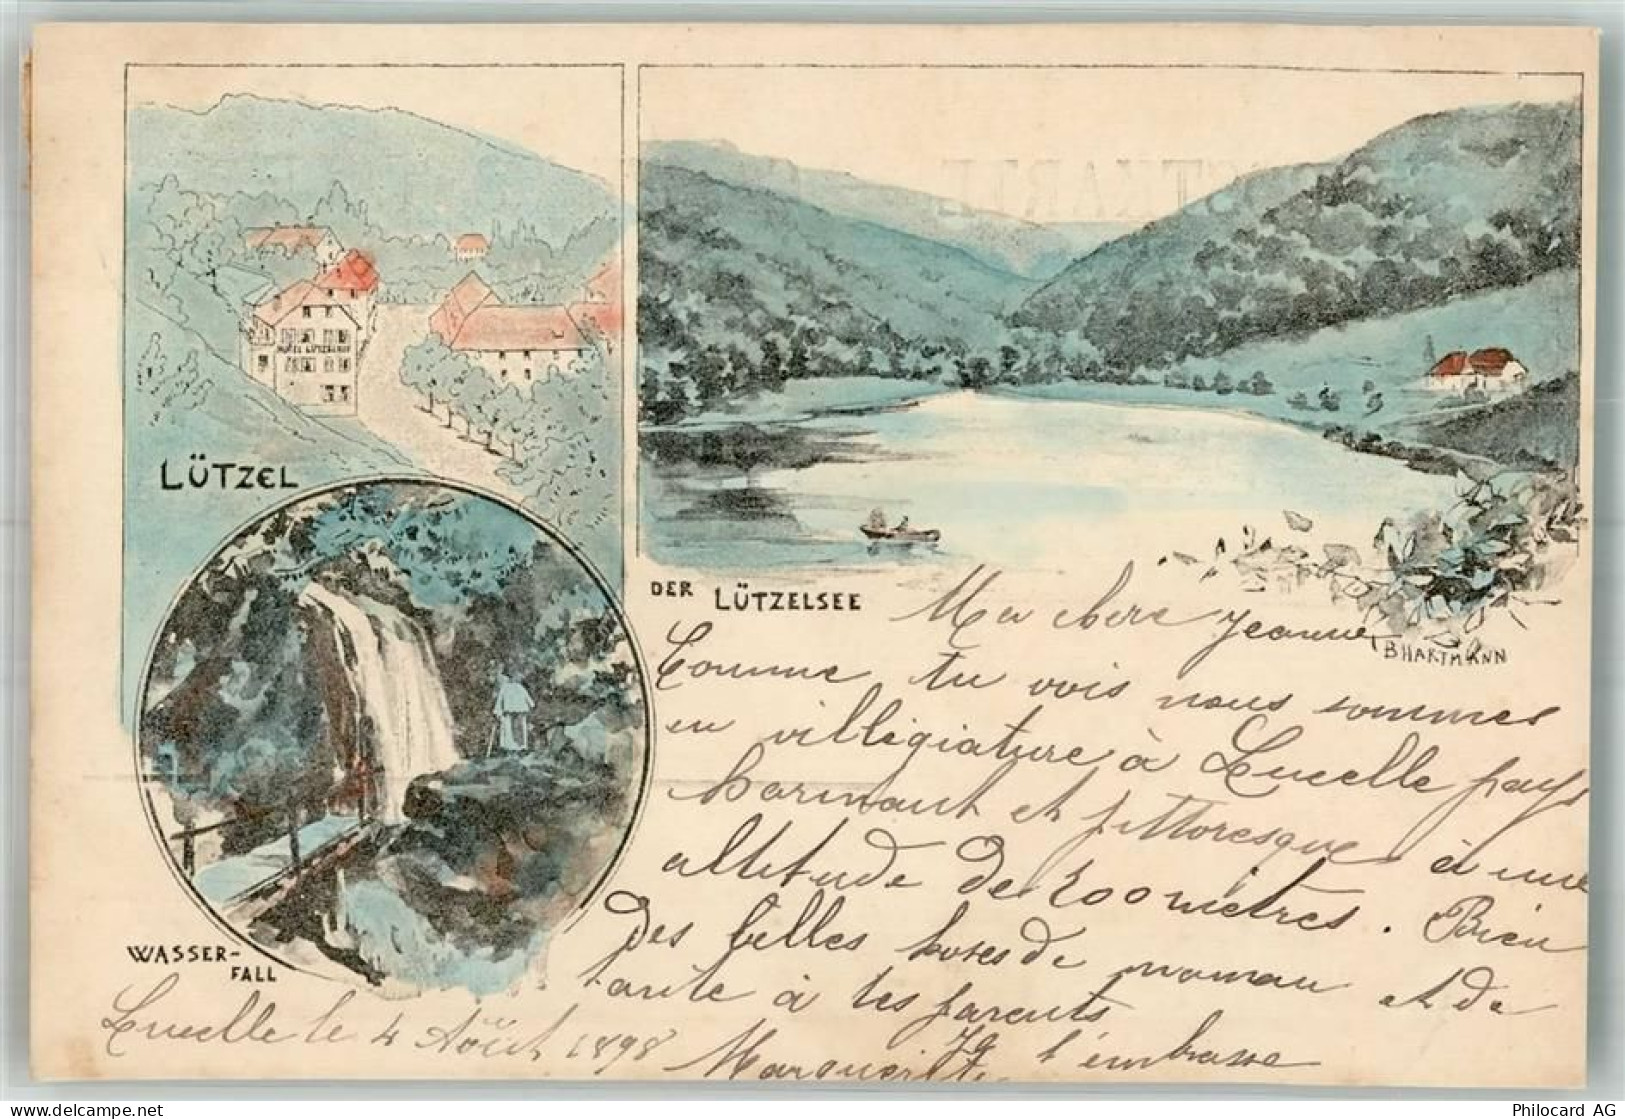 HOTEL LÜTZELHOF
LÜTZEL
WASSER-
FALL
DER LÜTZELSEE
BHARTMANN
Ma chère Jeanne
Comme tu vois nous sommes
en villégiature à Lucelle pays
charmant et pittoresque à une
altitude de 600 mètres. Bien
des belles choses de maman et de
tante à tes parents
Je t'embrasse
Marguerite
Lucelle le 4 Août 1898
www.delcampe.net
Philocard AG